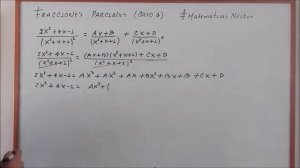 FRACCIONES PARCIALES (CASO 4) # Matemáticas Nestor
(2x²+4x-1)/(x²+x+1)² = (Ax+B)/(x²+x+1) + (Cx+D)/(x²+x+1)²
(2x²+4x-1)/(x²+x+1)² = ((Ax+B)(x²+x+1)+Cx+D)/(x²+x+1)²
2x²+4x-1 = Ax³+Ax²+Ax+Bx²+Bx+B+Cx+D
2x²+4x-1 = Ax³+(